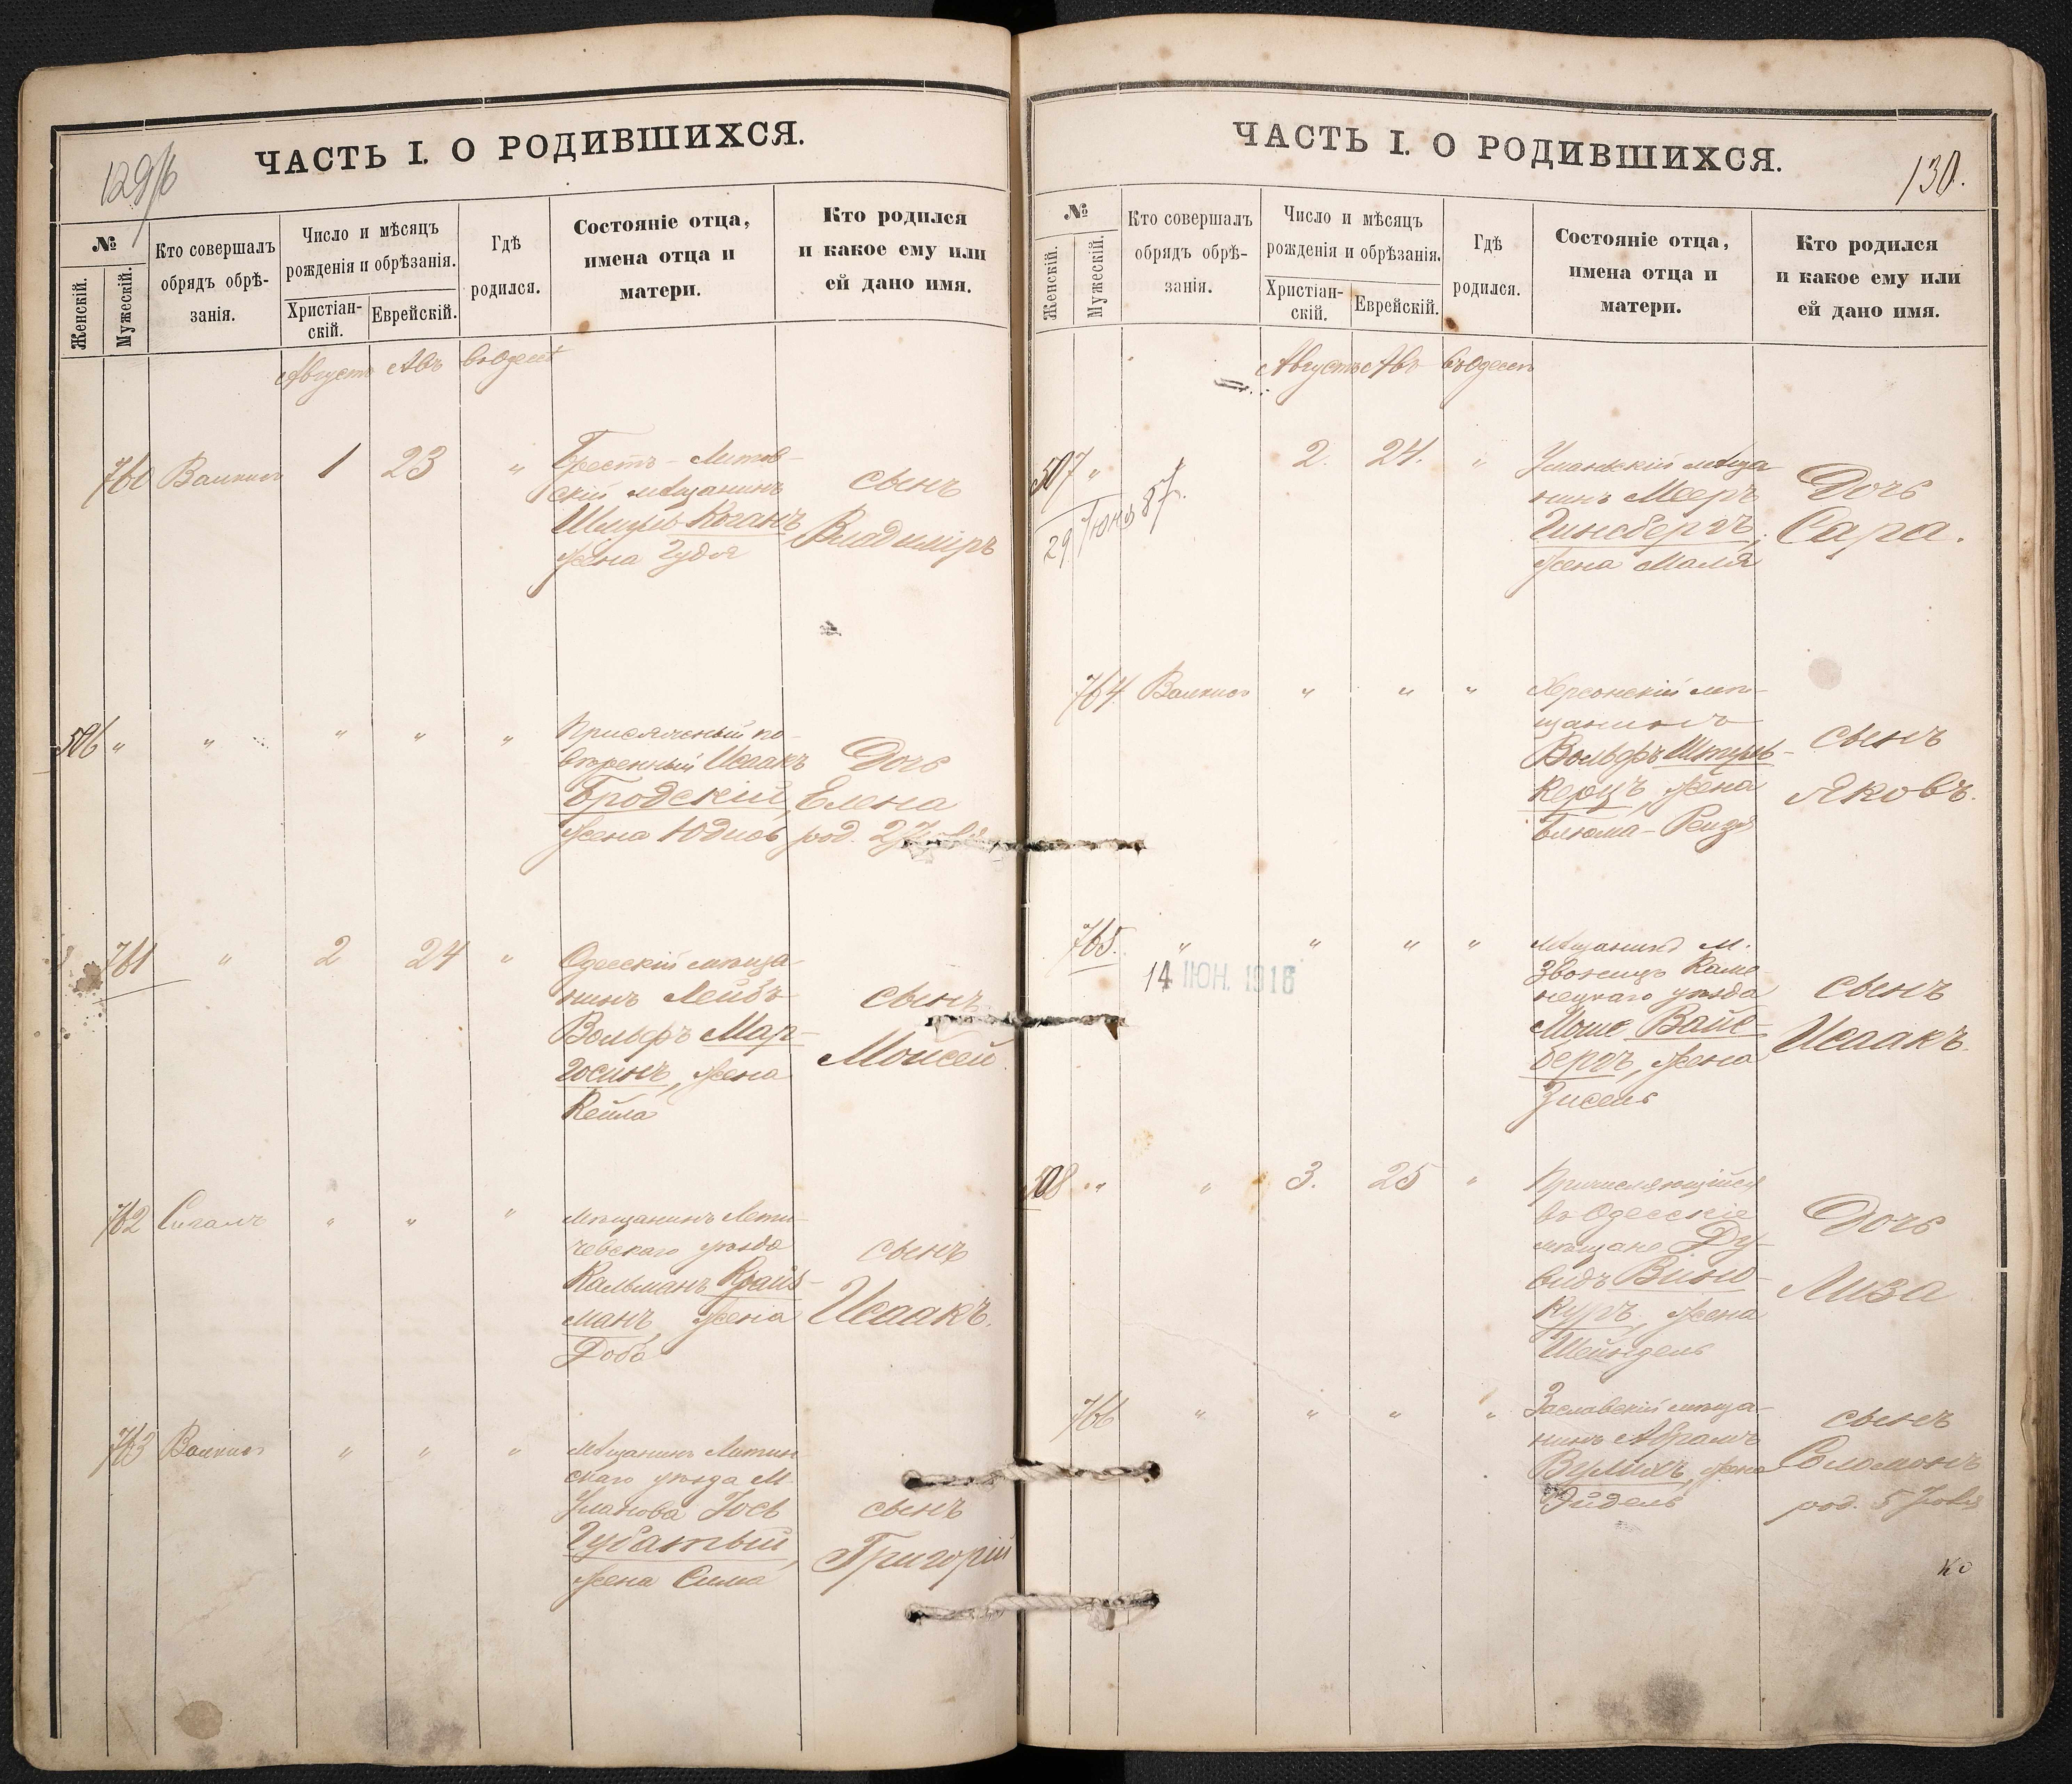 129/б
ЧАСТЬ I. О РОДИВШИХСЯ.
№
Женскій.
Мужескій.
Кто совершалъ
обрядъ обрѣ-
занія.
Число и мѣсяцъ
рожденія и обрѣзанія.
Христіан-
скій.
Еврейскій.
Гдѣ
родился.
Состояніе отца,
имена отца и
матери.
Кто родился
и какое ему или
ей дано имя.
Августъ Авъ въ Одессѣ
760 1 23 "
Брестъ-Литов-
скій мѣщанинъ
Коганъ
жена Гудя
сынъ
Владиміръ
506 " " " " "
Присяжный по-
вѣренный Исаакъ
Бродскій,
жена Юдиѳь
Дочь
Елена
род. 27
761 " 2 24 "
Одесскій мѣща-
нинъ Лейбъ
Вольфъ Мар-
госинъ, жена
Кейла
сынъ
Моисей
762 Сигалъ " " "
Мѣщанинъ Лети-
чевскаго уѣзда
Кальманъ Крайз-
манъ жена
Доба
сынъ
Исаакъ.
763 " " "
Мѣщанинъ Литин
скаго уѣзда М.
Уланова Іосъ
Губатый,
жена Сима
сынъ
Григорій
130.
ЧАСТЬ I. О РОДИВШИХСЯ.
№
Женскій.
Мужескій.
Кто совершалъ
обрядъ обрѣ-
занія.
Число и мѣсяцъ
рожденія и обрѣзанія.
Христіан-
скій.
Еврейскій.
Гдѣ
родился.
Состояніе отца,
имена отца и
матери.
Кто родился
и какое ему или
ей дано имя.
Августъ Авъ въ Одессѣ
507 " 2. 24. "
29 Іюнь 87.
Уманскій мѣща
нинъ Мееръ
Гинсбергъ,
жена Маля
Дочь
Сара.
764 " " "
Херсонскій мѣ-
щанинъ
Вольфъ Штуль-
керцъ, жена
Блюма-Рейзя
сынъ
Яковъ.
765. " " " "
14 ІЮН. 1916
Мѣщанинъ М.
Звонецъ Каме
нецкаго уѣзда
Моше Вайс-
бергъ, жена
Зисель
сынъ
Исаакъ.
508 " " 3. 25 "
Причисляющійся
въ Одесскіе
мѣщане Ду-
видъ Вино-
куръ, жена
Шейндель
Дочь
Лиза
766 " " " "
Заславскій мѣща-
нинъ Абрамъ
Вулихъ, жена
Эйдель
сынъ
Соломонъ
род. 5 Іюля